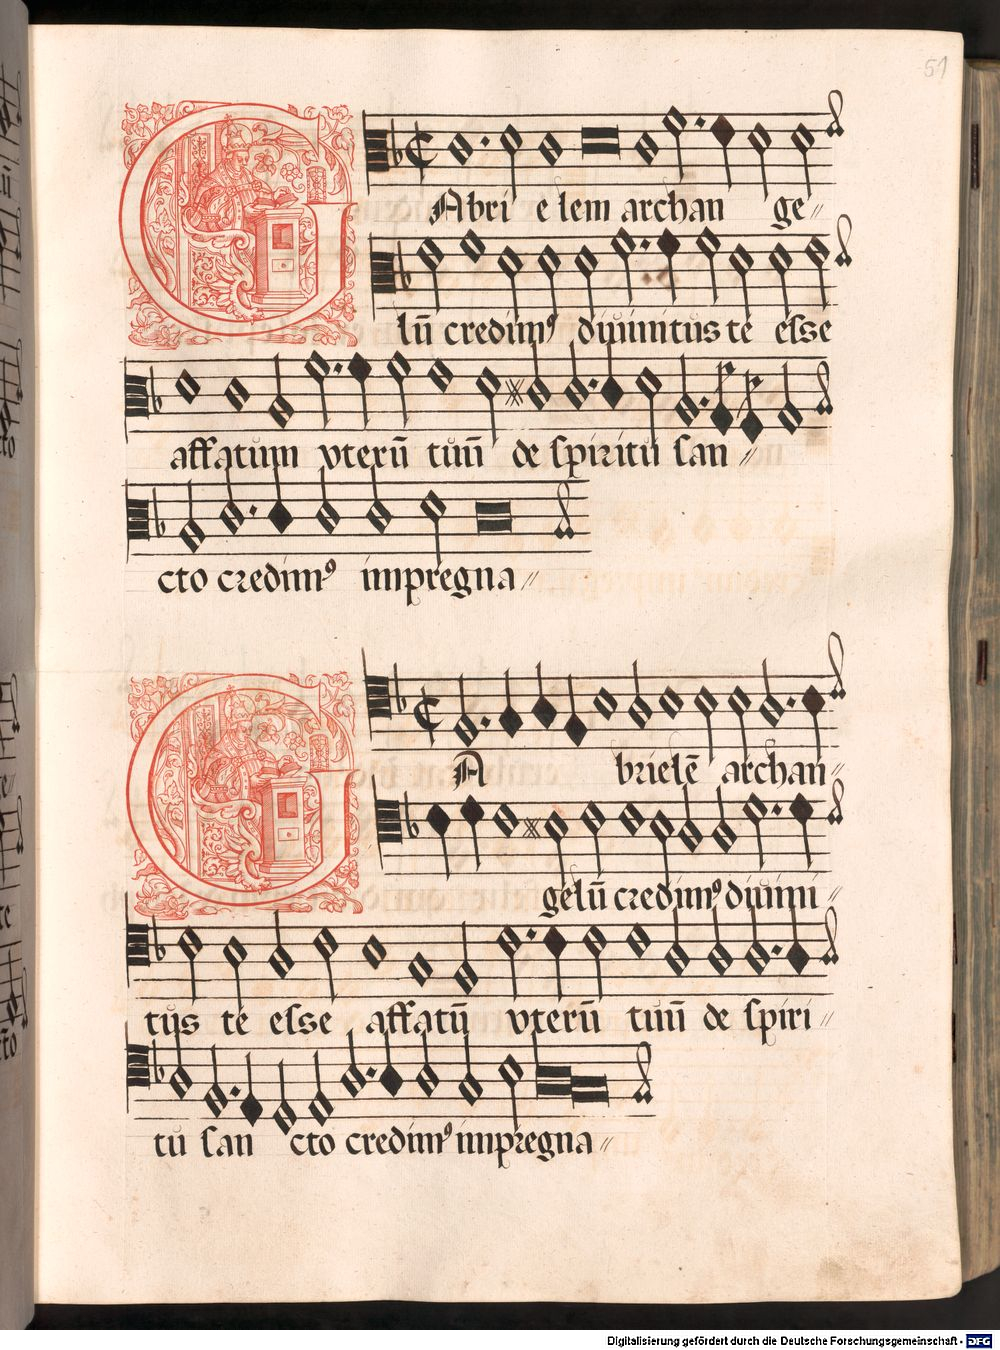 51
GAbri e lem archan ge〃
lū credimꝰ diuinitus te esse
affatum vterū tuū de spiritu san〃
cto credimꝰ impregna〃
GA brielē archan〃
gelū credimꝰ diuini〃
tus te esse affatū vterū tuū de spiri〃
tu san cto credimꝰ impregna〃
Digitalisierung gefördert durch die Deutsche Forschungsgemeinschaft - DFG